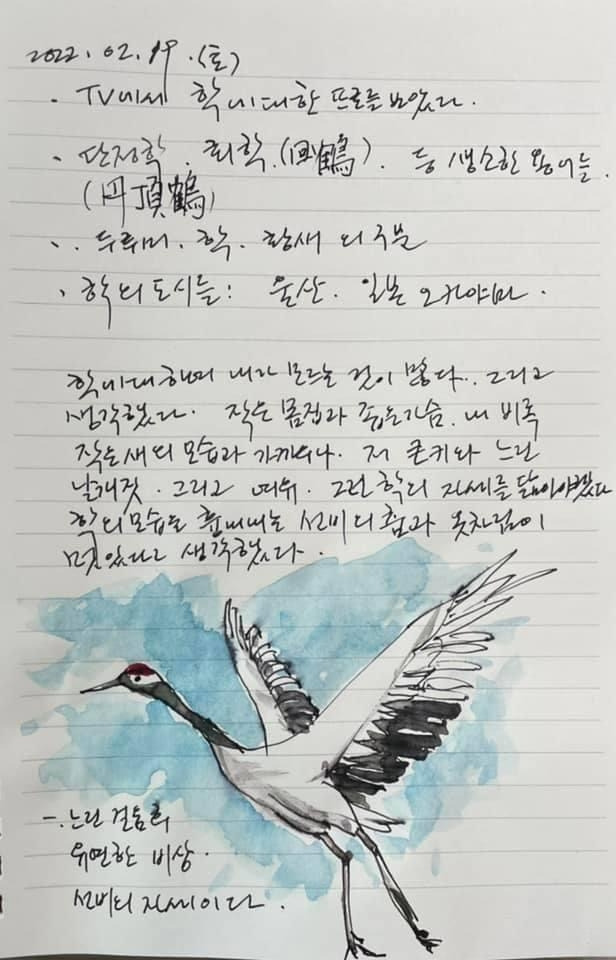 2022. 02. 19. (토)
· TV에서 학에 대한 뜨로를 보았다.
· 단정학. 회학. (回鶴). 등 생소한 용어들.
(円頂鶴)
· 두루미. 학. 황새의 구분
· 학의 도시들: 울산. 일본 오카야마.
학에 대하여 내가 모르는 것이 많다. 그리고
생각했다. 작은 몸집과 좁은 가슴. 내 비록
작은 새의 모습과 가까우나. 저 큰 키와 느린
날개짓. 그리고 여유. 그런 학의 자세를 닮아야겠다
학의 모습을 흉내내는 선비의 춤과 옷차림이
멋있다고 생각했다.
-. 느린 걸음의
유연한 비상.
선비의 자세이다.